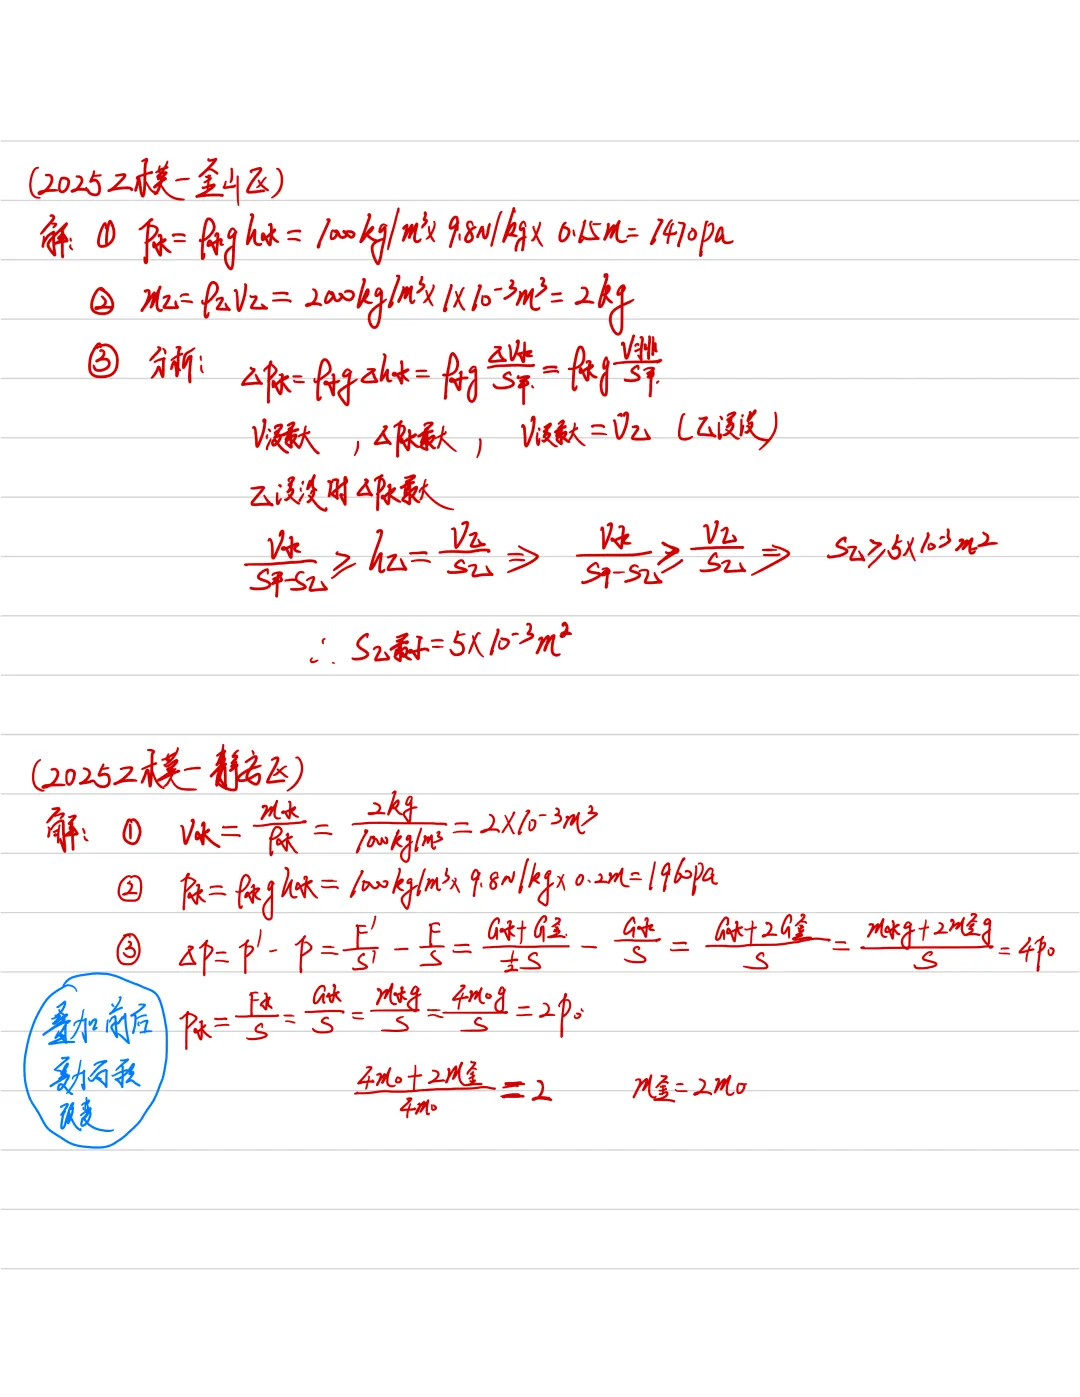 (2025二模-金山区)
解: ① P水=ρ水gh水=1000kg/m³×9.8N/kg×0.15m=1470pa
② m乙=ρ乙V乙=2000kg/m³×1×10⁻³m³=2kg
③ 分析: △P水=ρ水g△h水=ρ水g△V水/S甲=ρ水gV排/S甲
V浸最大, △P水最大, V浸最大=V乙 (乙浸没)
乙浸没时△P水最大
V水/(S甲-S乙)≥h乙=V乙/S乙 ⇒ V水/(S甲-S乙)≥V乙/S乙 ⇒ S乙≥5×10⁻³m²
∴ S乙最小=5×10⁻³m²
(2025二模-静安区)
解: ① V水=m水/ρ水=2kg/1000kg/m³=2×10⁻³m³
② P水=ρ水gh水=1000kg/m³×9.8N/kg×0.2m=1960pa
③ △P=P'-P=F'/S'-F/S=(G水+G金)/½S-G水/S=(G水+2G金)/S=(m水g+2m金g)/S=4P₀
P水=F水/S=G水/S=m水g/S=4m₀g/S=2P₀
(4m₀+2m金)/4m₀=2 m金=2m₀
叠加前后
受力面积
改变